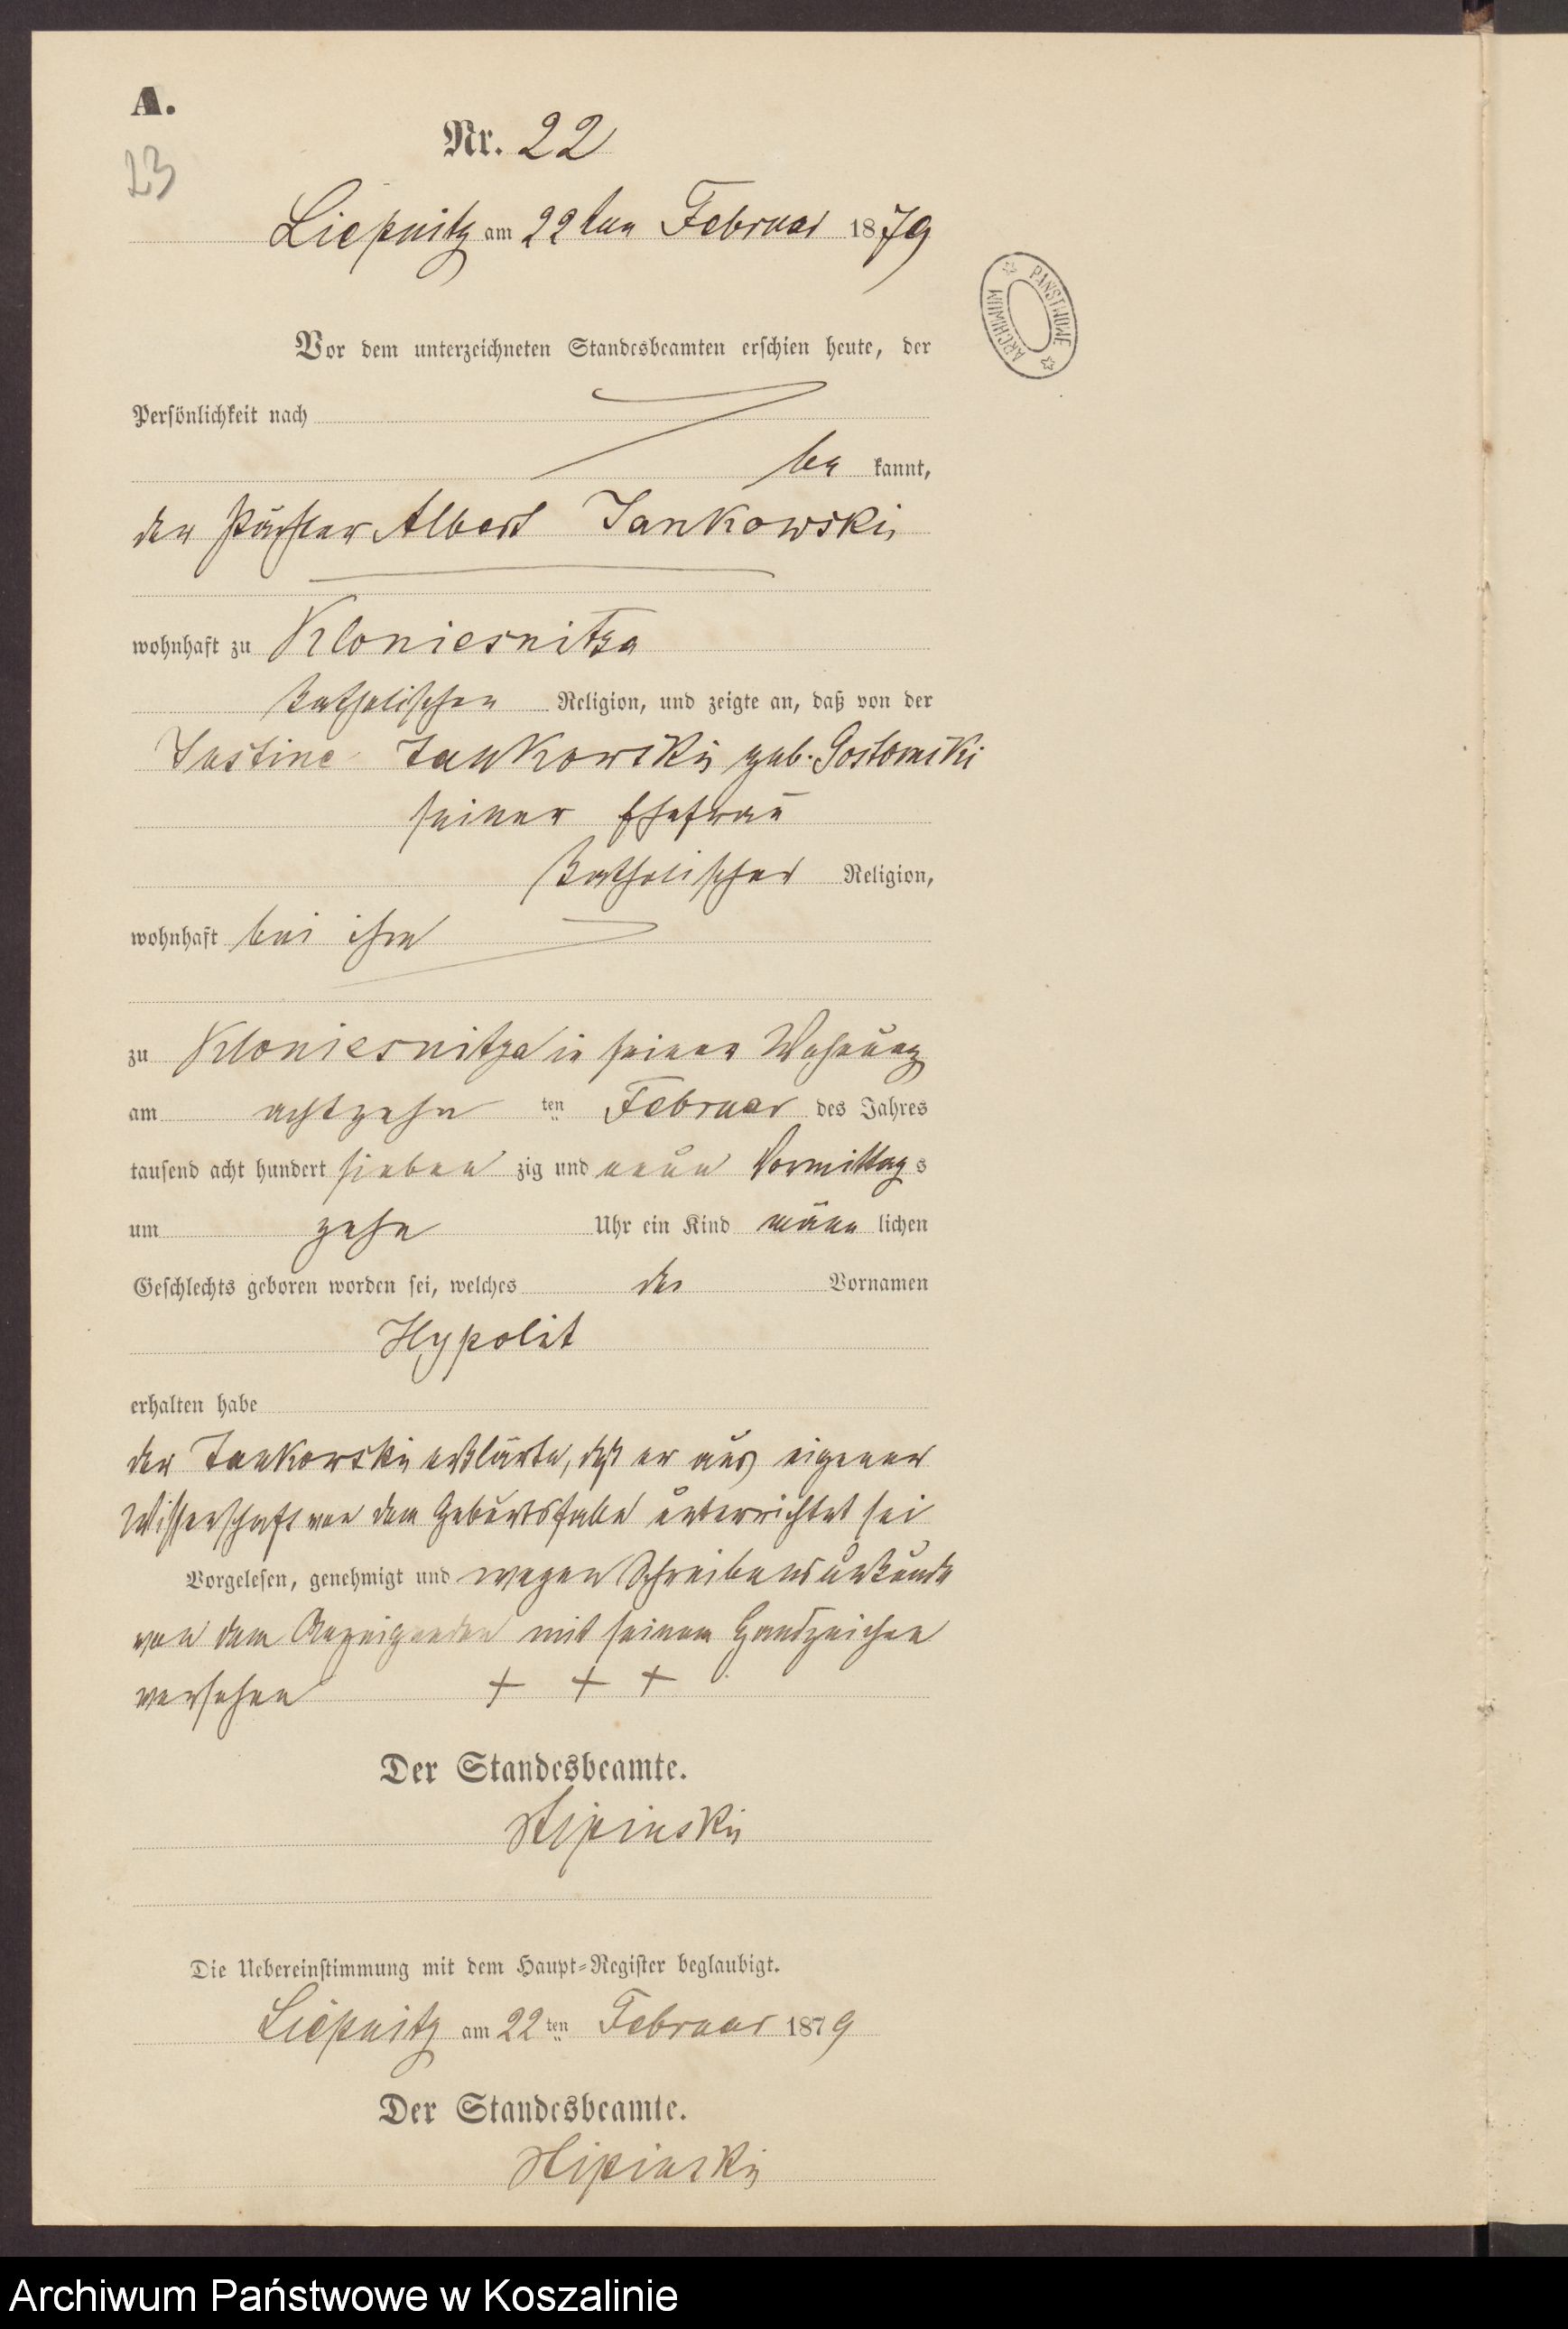 A.
Nr. 22
23
Liepnitz am 22ten Februar 1879
ARCHIWUM PAŃSTWOWE
Vor dem unterzeichneten Standesbeamten erschien heute, der
Persönlichkeit nach
be kannt,
der Pächter Albert Jankowski
wohnhaft zu Kloniesnitza
katholischer Religion, und zeigte an, daß von der
Justine Jankowski geb. Gostomski
seiner Ehefrau
katholischer Religion,
wohnhaft bei ihm
zu Kloniesnitza in seiner Wohnung
am achtzehn ten Februar des Jahres
tausend acht hundert sieben zig und neun Vormittag s
um zehn Uhr ein Kind männ lichen
Geschlechts geboren worden sei, welches den Vornamen
Hypolit
erhalten habe
der Jankowski erklärte, daß er aus eigener
Wissenschaft von dem Geburtsfalle unterrichtet sei
Vorgelesen, genehmigt und wegen Schreibensunkunde
von dem Anzeigenden mit seinem Handzeichen
versehen + + +
Der Standesbeamte.
Die Uebereinstimmung mit dem Haupt-Register beglaubigt.
Liepnitz am 22 ten Februar 1879
Der Standesbeamte.
Archiwum Państwowe w Koszalinie